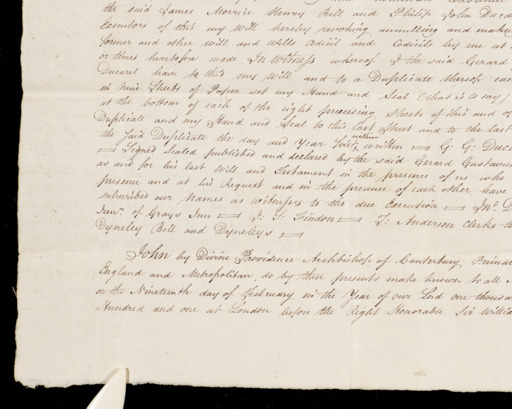 the said James Morrice Henry Bell and Philip John Ducarel
Executors of this my Will hereby revoking annulling and making
former and other Will and Wills Codicil and Codicils by me at
or times heretofore made In Witness whereof I the said Gerard
Ducarel have to this my Will and to a Duplicate thereof each
in nine Sheets of Paper set my Hand and Seal (that is to say)
at the bottom of each of the eight preceeding Sheets of this and of
Duplicate and my Hand and Seal to this last Sheet and to the last
the said Duplicate the day and Year first within written G: G: Duc
Signed Sealed published and declared by the said Gerard Gustavus
as and for his last Will and Testament in the presence of us who
presence and at his Request and in the presence of each other have
subscribed our Names as Witnesses to the due Execution Jno. D
Junr. of Grays Inn J: S: T: Anderson Clerks to
Dyneley Bell and Dyneleys
John by Divine Providence Archbishop of Canterbury, Primate
England and Metropolitan do by these presents make known to all
on the Nineteenth day of February in the Year of our Lord one thousand
Hundred and one at London before the Right Honorable Sir Willia